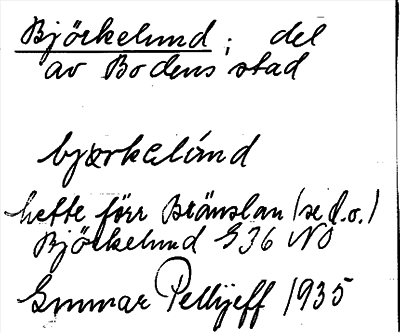 Björkelund; del
av Bodens stad
bjørkelúnd
hette förr Bränslan (se d.o.)
Björkelund S 36 NO
Gunnar Pellijeff 1935